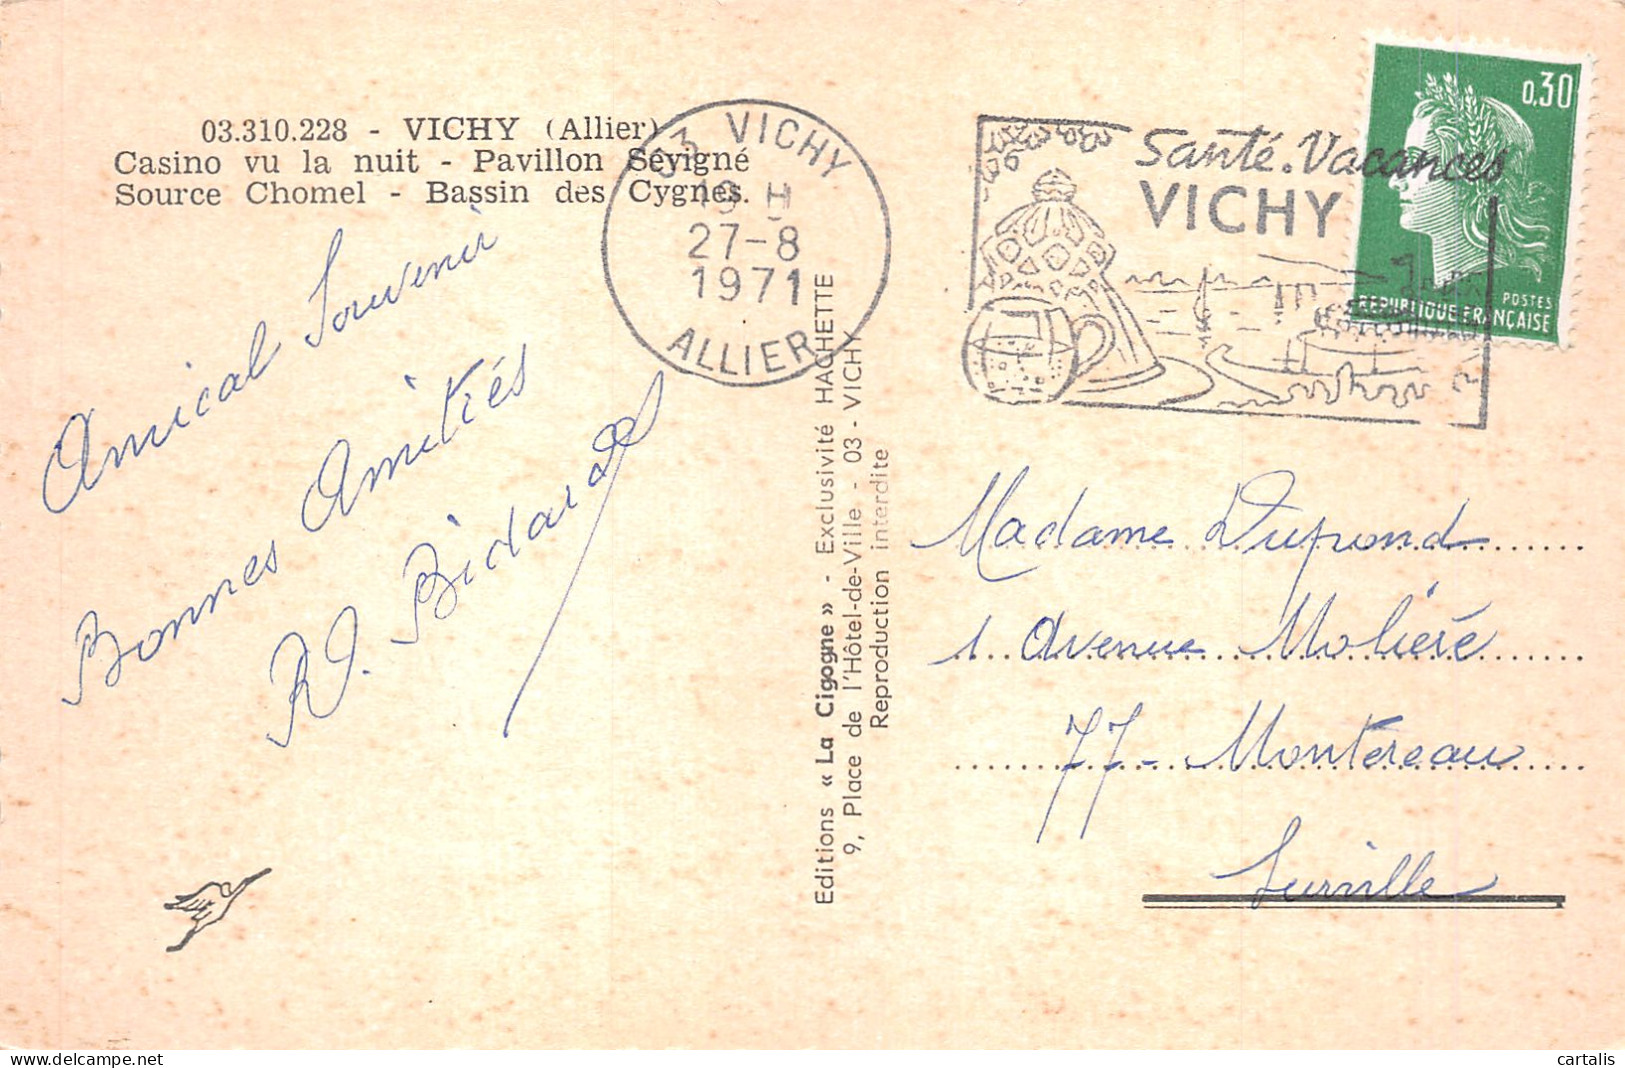 03.310.228 - VICHY (Allier)
Casino vu la nuit - Pavillon Sévigné
Source Chomel - Bassin des Cygnes.
03 VICHY
19 H
27-8
1971
ALLIER
Santé.Vacances
VICHY
0,30
POSTES
REPUBLIQUE FRANÇAISE
Amical Souvenir
Bonnes Amitiés
Bidard
Editions « La Cigogne » - Exclusivité HACHETTE
9, Place de l'Hôtel-de-Ville - 03 - VICHY
Reproduction interdite
Madame Dupond
1 Avenue Molière
77 - Montereau
Surville
cartalis